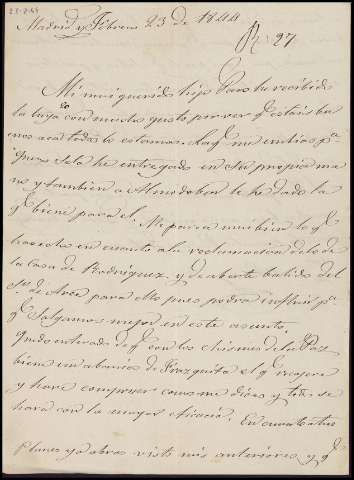 23-2-44
Madrid y Febrero 23 de 1844
R. 27
Mi mui querido hijo Paco he recibido
la tuya con mucho gusto por ver qe estais bu
enos acá todos lo estamos. La qe me embias pa
se la he entregado en su propia ma
no y tambien a Almodobar le he dado la
qe biene para el. Me parece mui bien lo qe
haceis en cuanto a la reclamacion de lo de
la Casa de Rodriguez, y de aberte balido del
Sr. de Arce para ello pues podra influir pa
qe salgamos mejor en este asunto.
Quedo enterado de qe con los chismes de la Paz
biene un abanico de Frazquita el qe recojere
y hare componer como me dices y todo se
hara con la mayor eficacia. En cuanto a tus
planes ya abras visto mis anteriores y qe